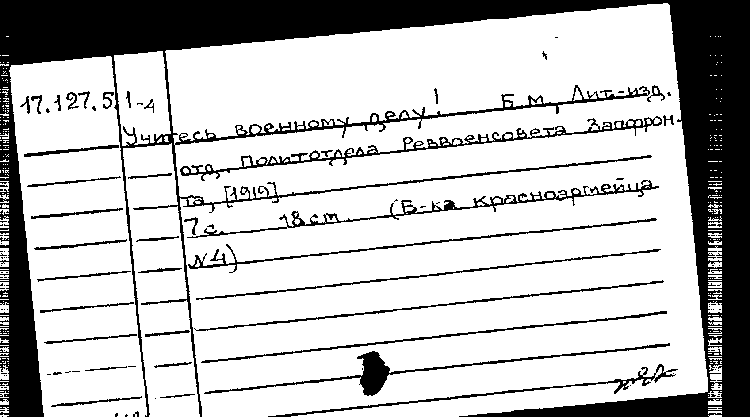 17.127.5.1-4
Учитесь военному делу! Б.м., Лит.-изд.
отд. Политотдела Реввоенсовета Запфрон-
та, [1919].
7 с. 18 см. (Б-ка красноармейца
№4)